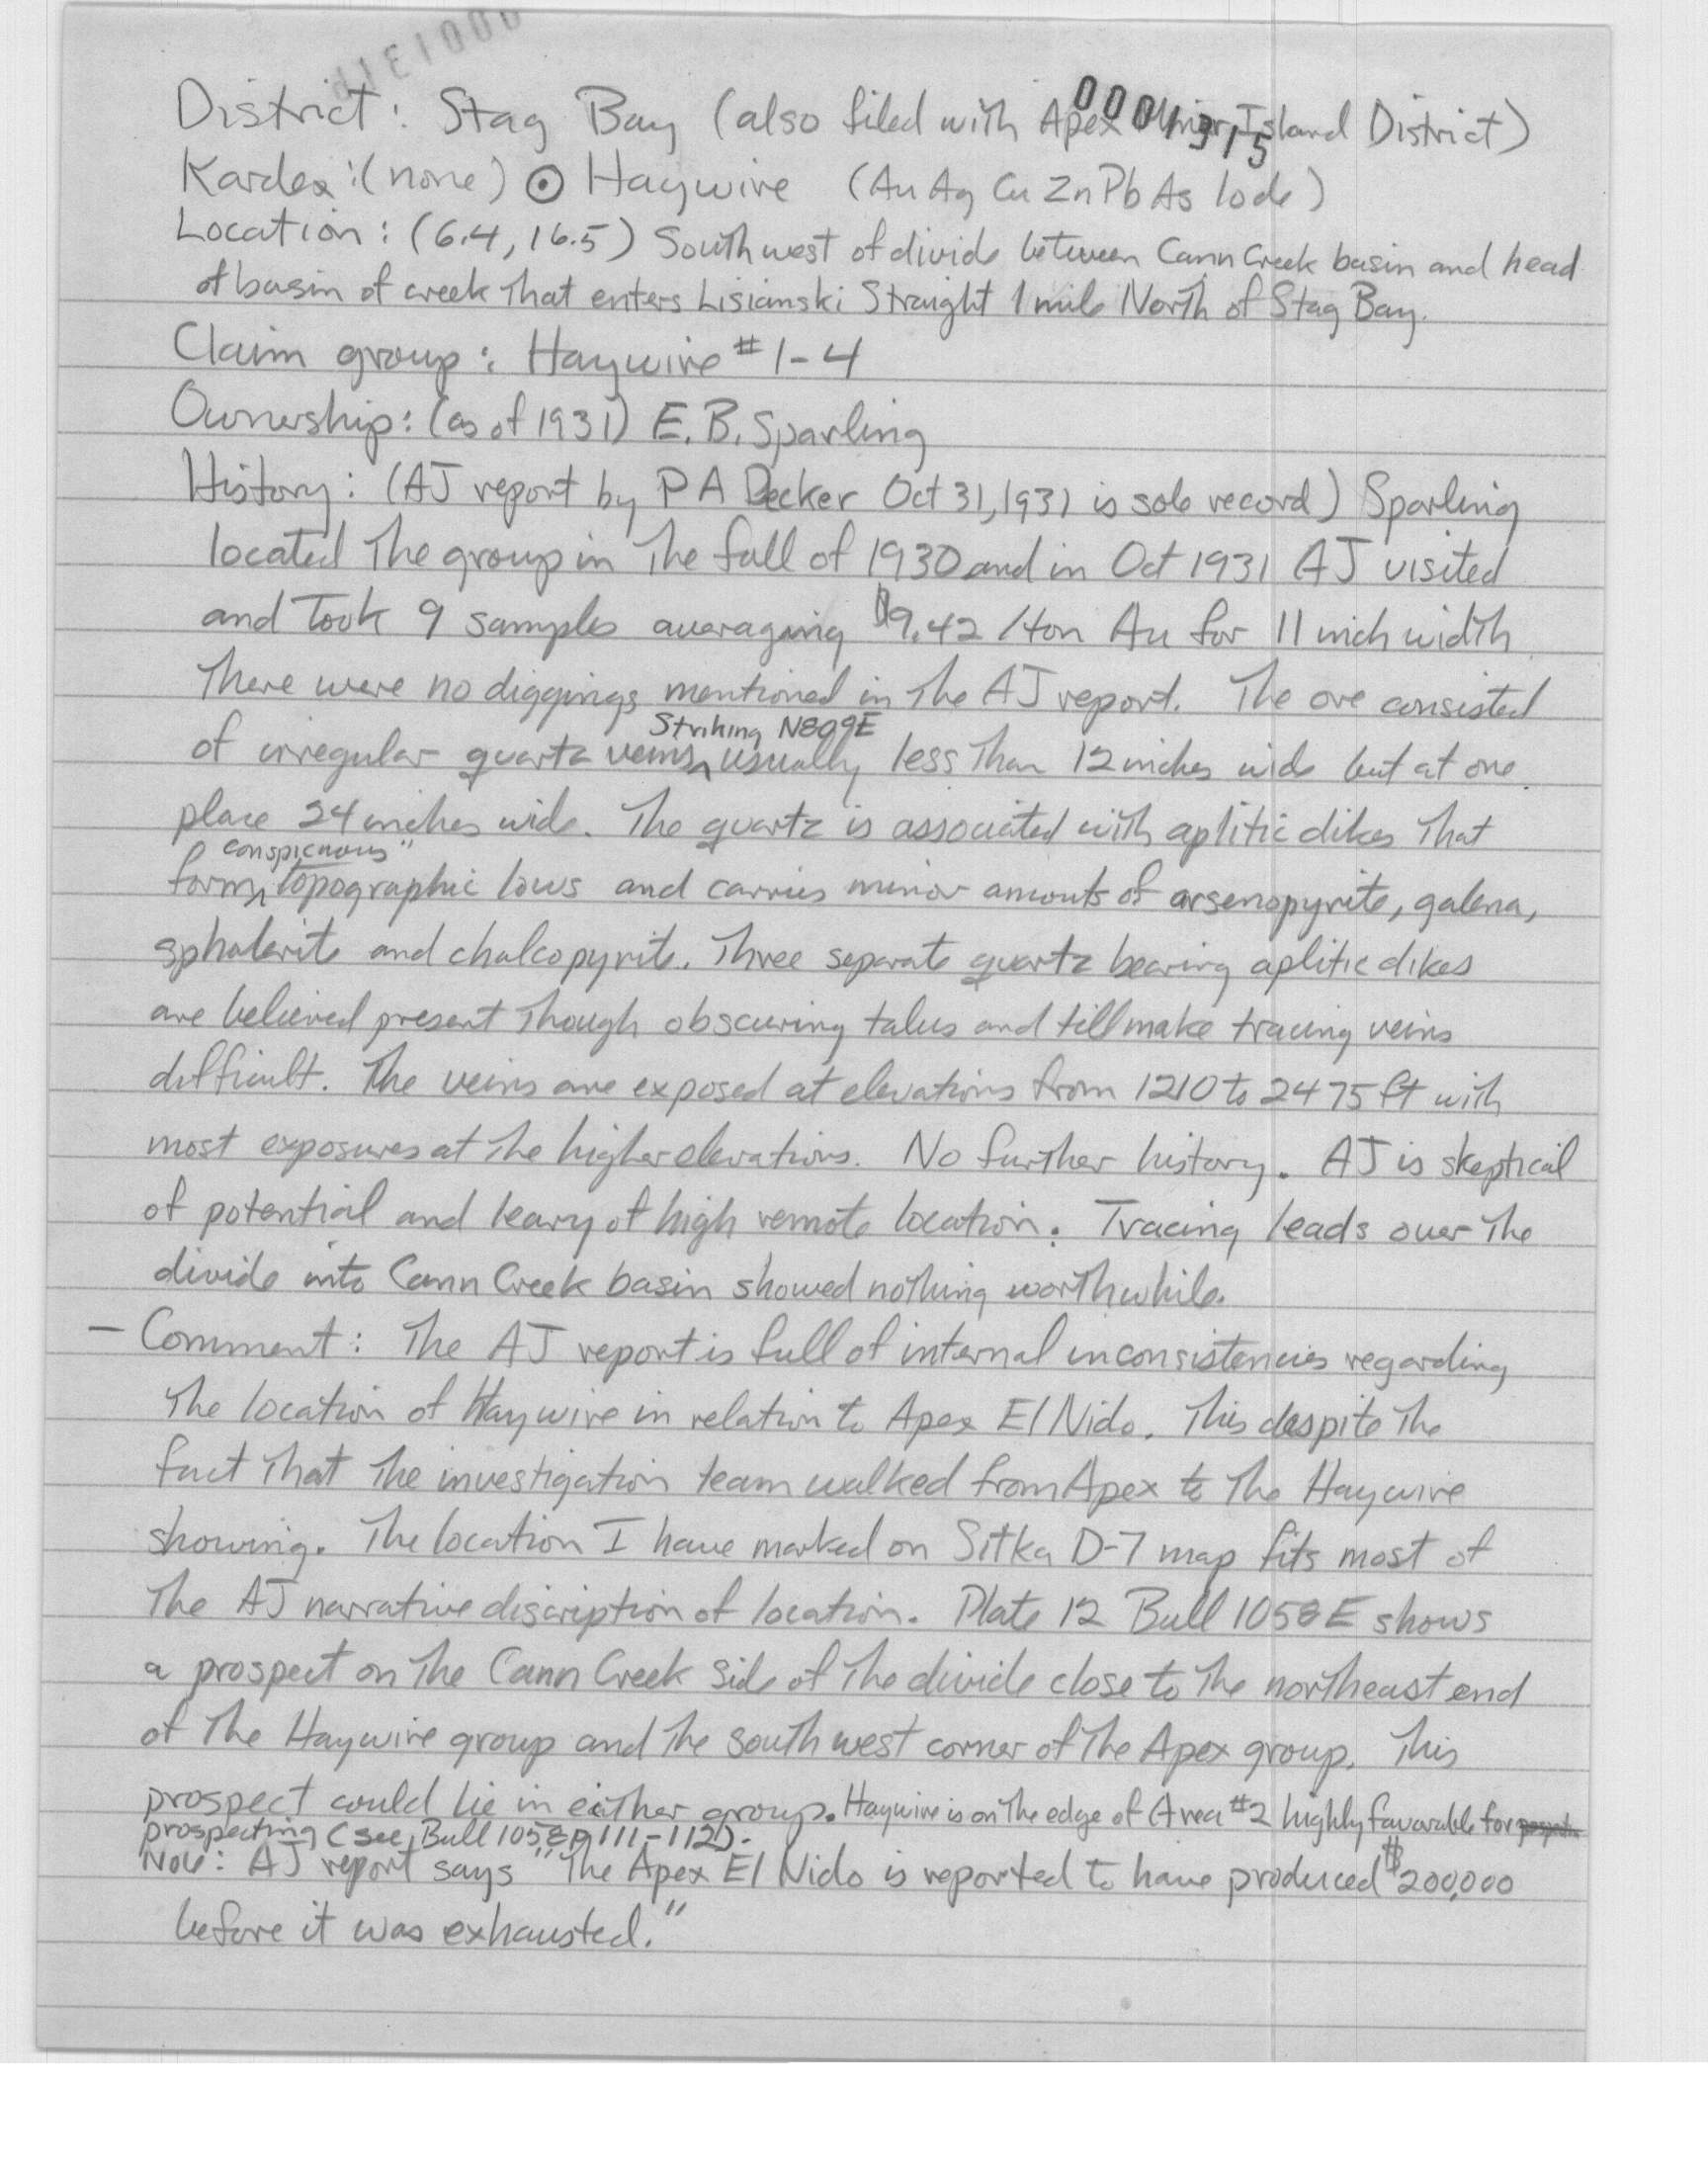 District: Stag Bay (also filed with Apex Island District)
0001315
Kardex: (none) ⊙ Haywire (Au Ag Cu Zn Pb As lode)
Location: (6.4, 16.5) Southwest of divide between Cann Creek basin and head
of basin of creek that enters Lisianski Straight 1 mile North of Stag Bay.
Claim group: Haywire #1-4
Ownership: (as of 1931) E. B. Sparling
History: (AJ report by P A Decker Oct 31, 1931 is sole record) Sparling
located the group in the fall of 1930 and in Oct 1931 AJ visited
and took 9 samples averaging $9.42 /ton Au for 11 inch width
There were no diggings mentioned in the AJ report. The ore consisted
of irregular quartz veins, striking usually less than 12 inches wide but at one
place 24 inches wide. The quartz is associated with aplitic dikes that
form "conspicuous" topographic lows and carries minor amounts of arsenopyrite, galena,
sphalerite and chalcopyrite. Three separate quartz bearing aplitic dikes
are believed present though obscuring talus and till make tracing veins
difficult. The veins are exposed at elevations from 1210 to 2475 ft with
most exposures at the higher elevations. No further history. AJ is skeptical
of potential and leary of high remote location. Tracing leads over the
divide into Cann Creek basin showed nothing worthwhile.
— Comment: The AJ report is full of internal inconsistencies regarding
the location of Haywire in relation to Apex El Nido. This despite the
fact that the investigation team walked from Apex to the Haywire
showing. The location I have marked on Sitka D-7 map fits most of
the AJ narrative discription of location. Plate 12 Bull 1058E shows
a prospect on the Cann Creek side of the divide close to the northeast end
of the Haywire group and the southwest corner of the Apex group. This
prospect could lie in either group. Haywire is on the edge of Area #2 highly favorable for
prospecting (see Bull 1058 p 111-112).
Note: AJ report says "The Apex El Nido is reported to have produced $200,000
before it was exhausted."